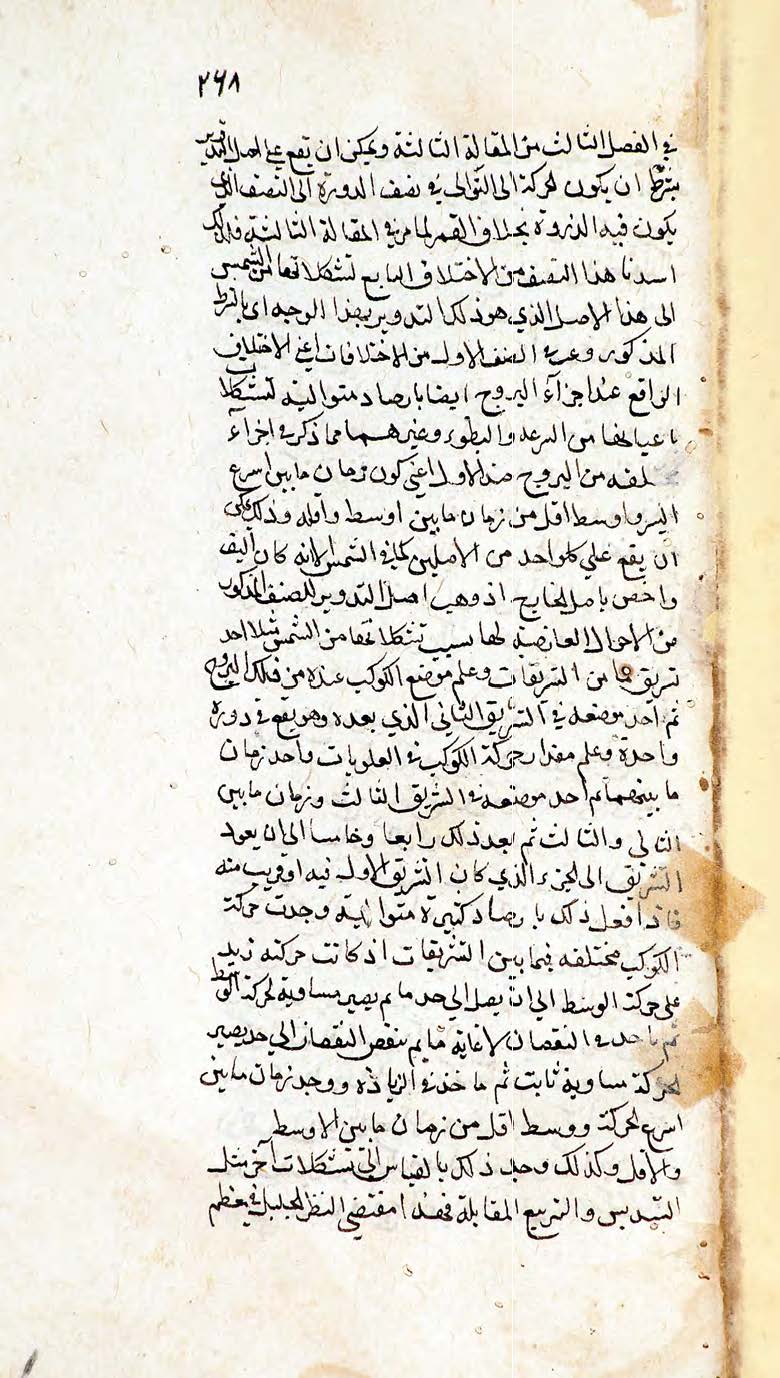 ٢٦٨
في الفصل الثالث من المقالة الثالثة ويمكن ان يقع على اصل التدوير
بشرط ان يكون الحركة الى التوالي في نصف الدورة الى النصف الذي
يكون فيه الذروة بخلاف القمر لما مر في المقالة الثالثة فلذلك
اسندنا هذا الصنف من الاختلاف التابع لتشكلاتها من الشمس
الى هذا الاصل الذي هو فلك التدوير بهذا الوجه اى بالشرط
المذكور وعرف الصنف الاول من الاختلافات اعني الاختلاف
الواقع عند اجزآء البروج ايضا بارصاد متوالية لتشكلات
باعيانها من السرعة والبطوء وغيرهما مما ذكر في اجزآء
مختلفه من البروج ضد الاول اعني كون زمان ما بين اسرع
السير واوسط اقل من زمان ما بين اوسط واقله وذلك يمكن
ان يقع على كل واحد من الاصلين كما في الشمس الا انه كان اليف
واخص باصل الخارج اذ وهب اصل التدوير للصنف المذكور
من الاحوال العارضة لها بسبب تشكلاتها من الشمس مثلا احد
تشريق ما من التشريقات وعلم موضع الكوكب عنده من فلك البروج
ثم احد موضعه في التشريق الثاني الذي بعده وهو يقع في دورة
واحدة وعلم مقدار حركة الكوكب في العلويات واحد زمان
ما بينهما ثم احد موضعه في التشريق الثالث وزمان ما بين
الثاني والثالث ثم بعد ذلك رابعا وخامسا الى ان يعود
التشريق الى الجزء الذي كان التشريق الاول فيه او قريب منه
فاذا فعل ذلك بارصاد كثيرة متوالية وجدت حركة
الكوكب مختلفه فيما بين التشريقات اذ كانت حركته تزيد
على حركة الوسط الى ان يصل الى حد ما ثم يصير مساوية لحركة الوسط
ثم ياخذ في النقصان لا غاية ما ثم ينقص النقصان الى حد يصير
الحركة مساوية ثابت ثم ماخذ في الزيادة ووجد زمان ما بين
اسرع الحركة ووسط اقل من زمان ما بين الاوسط
والاقل وكذلك وجد ذلك بالقياس الى تشكلات آخر مثل
التسديس والتربيع المقابلة فهذا مقتضى النظر الجليل في يعظم